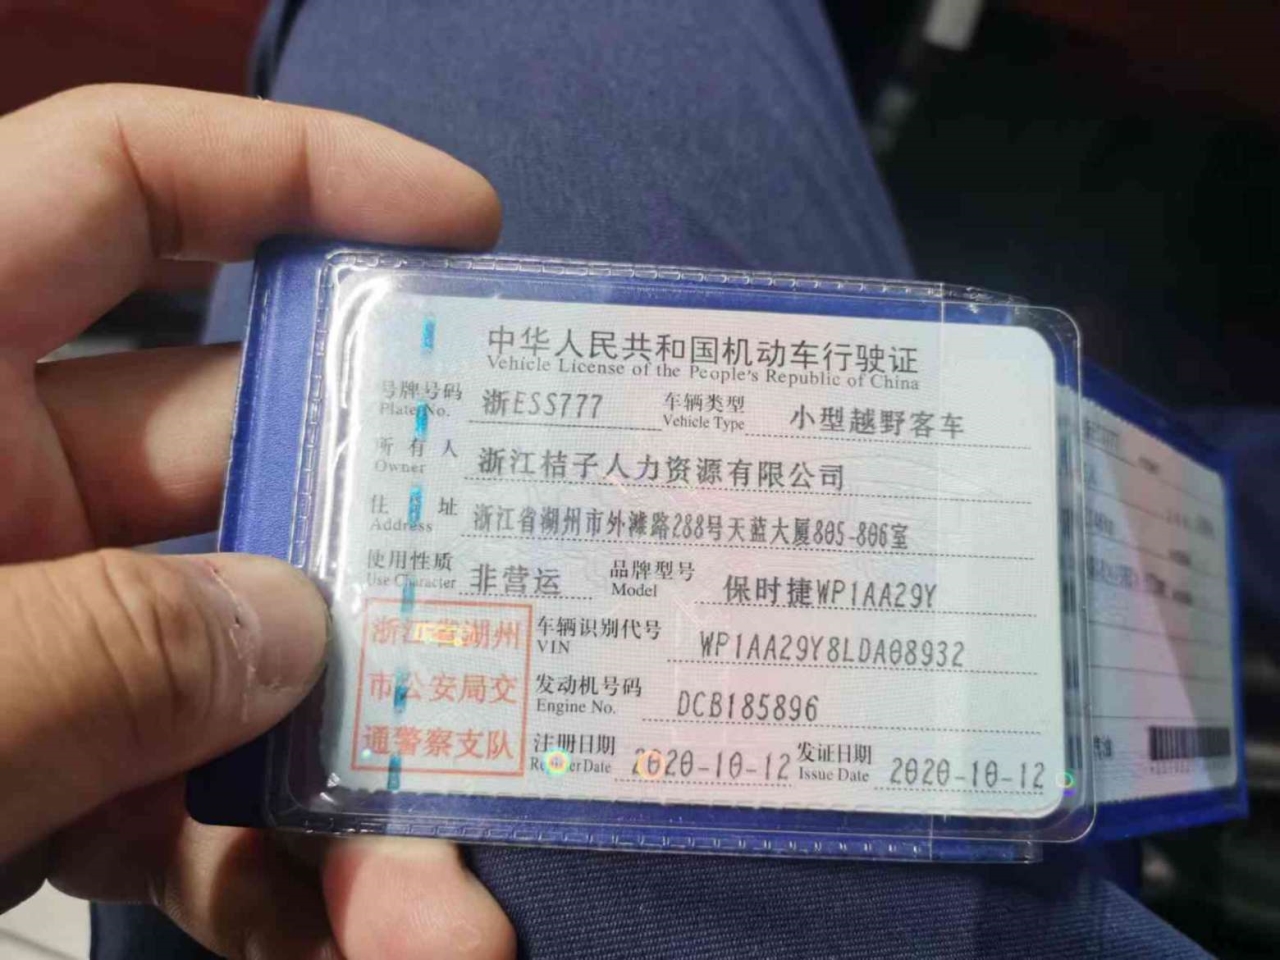 中华人民共和国机动车行驶证
Vehicle License of the People's Republic of China
号牌号码 浙ESS777 车辆类型 小型越野客车
Plate No. Vehicle Type
所有人 浙江桔子人力资源有限公司
Owner
住址 浙江省湖州市外滩路288号天蓝大厦805-806室
Address
使用性质 非营运 品牌型号 保时捷WP1AA29Y
Use Character Model
浙江省湖州
市公安局交
通警察支队
车辆识别代号 WP1AA29Y8LDA08932
VIN
发动机号码 DCB185896
Engine No.
注册日期 2020-10-12 发证日期 2020-10-12
Register Date Issue Date